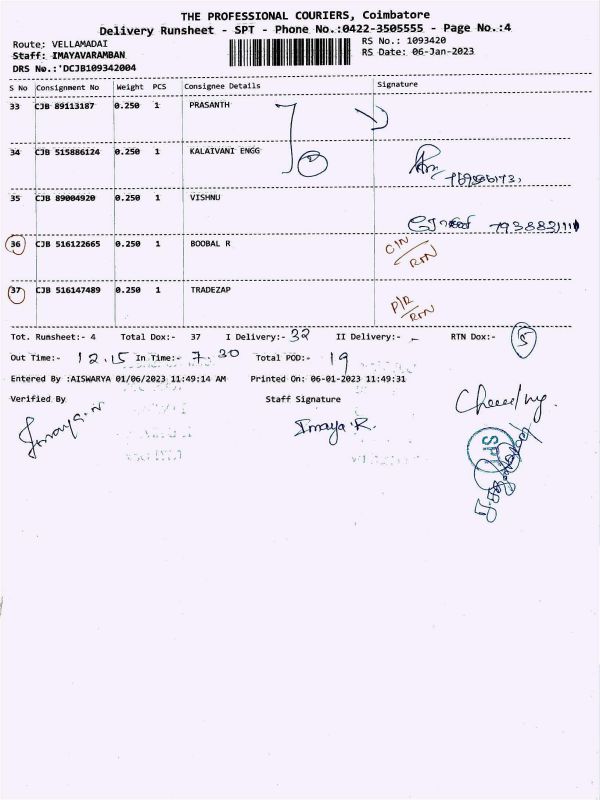 THE PROFESSIONAL COURIERS, Coimbatore
Delivery Runsheet - SPT - Phone No.:0422-3505555 - Page No.:4
Route: VELLAMADAI
RS No.: 1093420
Staff: IMAYAVARAMBAN
RS Date: 06-Jan-2023
DRS No.:'DCJB109342004
S No Consignment No Weight PCS Consignee Details Signature
33 CJB 89113187 0.250 1 PRASANTH
34 CJB 515886124 0.250 1 KALAIVANI ENGG
35 CJB 89004920 0.250 1 VISHNU
36 CJB 516122665 0.250 1 BOOBAL R C/N RTN
37 CJB 516147489 0.250 1 TRADEZAP P/R RTN
Tot. Runsheet:- 4 Total Dox:- 37 I Delivery:- 32 II Delivery:- - RTN Dox:- 5
Out Time:- 12.15 In Time:- 7.30 Total POD:- 19
Entered By :AISWARYA 01/06/2023 11:49:14 AM Printed On: 06-01-2023 11:49:31
Verified By Staff Signature
Imaya.R.
SPT